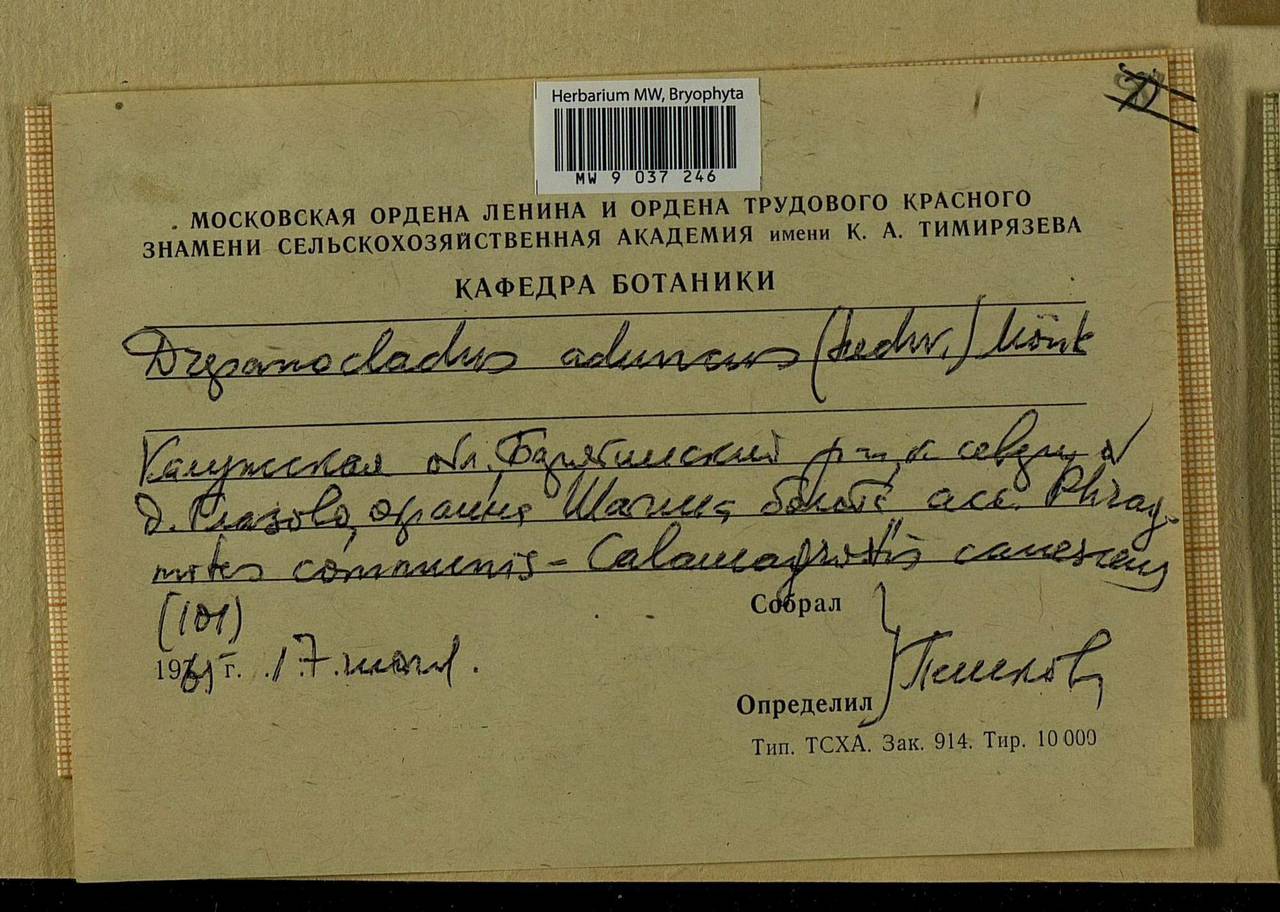 Herbarium MW, Bryophyta
MW 9 037 246
МОСКОВСКАЯ ОРДЕНА ЛЕНИНА И ОРДЕНА ТРУДОВОГО КРАСНОГО
ЗНАМЕНИ СЕЛЬСКОХОЗЯЙСТВЕННАЯ АКАДЕМИЯ имени К. А. ТИМИРЯЗЕВА
КАФЕДРА БОТАНИКИ
Drepanocladus aduncus (Hedw.) Mönk
Калужская обл. Барятинский р-н, к
д. окраина болота acc. Phrag-
mites communis - Calamagrostis canescens
(101)
Собрал
19 г. 17.
Определил
Тип. ТСХА. Зак. 914. Тир. 10 000